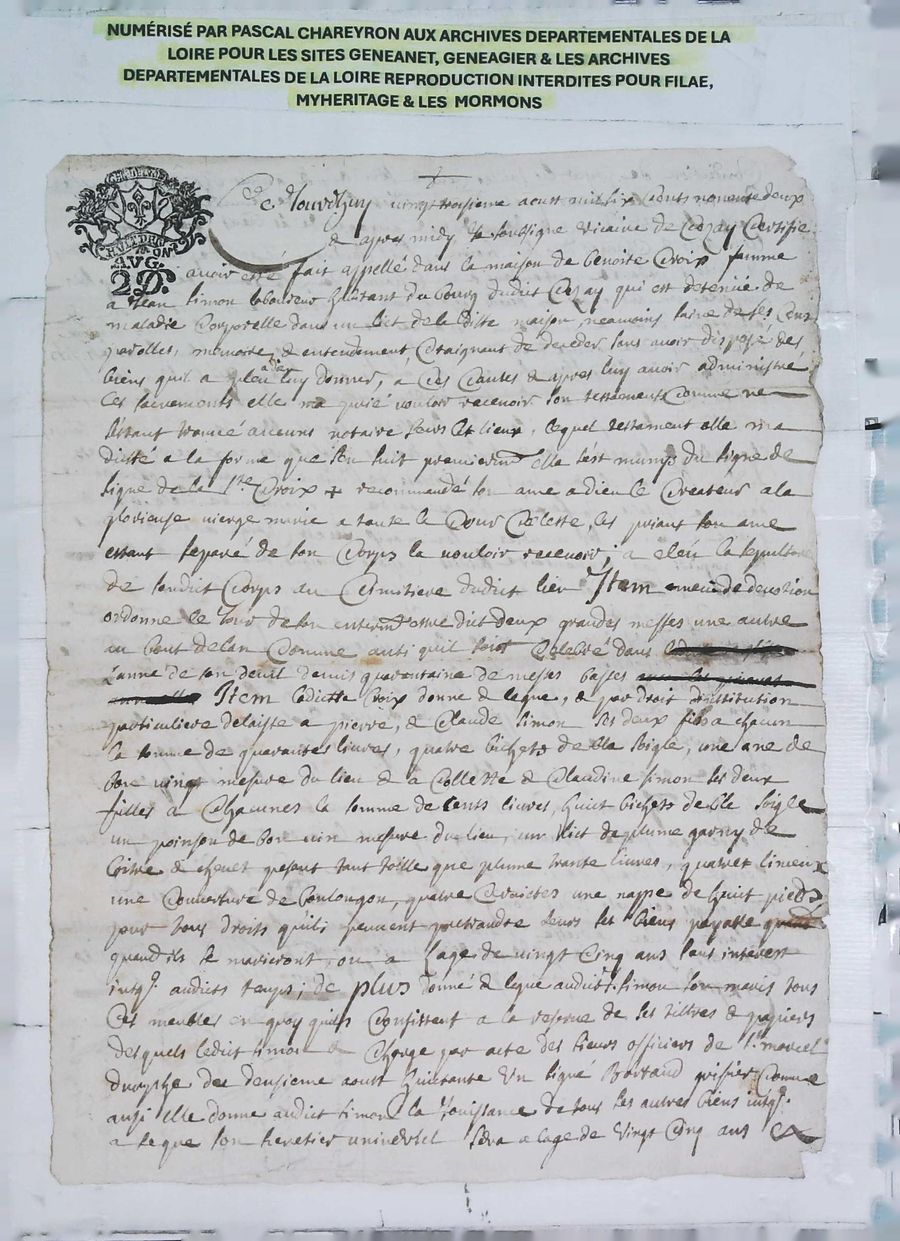 NUMÉRISÉ PAR PASCAL CHAREYRON AUX ARCHIVES DEPARTEMENTALES DE LA
LOIRE POUR LES SITES GENEANET, GENEAGIER & LES ARCHIVES
DEPARTEMENTALES DE LA LOIRE REPRODUCTION INTERDITES POUR FILAE,
MYHERITAGE & LES MORMONS
Ce Jourdhuy vingt troisieme aoust mil six cents nonente deux
& apres midy Je soubsigne vicaire de Cezay Certifie
AVG.
2D.
avoir esté fait appellé dans la maison de benoite Croix famme
a Jean simon laboureur habitant du bourg dudict Cezay qui est detenue de
maladie Corporelle dans un lict de la ditte maison, neamoins saine de ses sens
parolles, memoire, & entendement Craignant de deceder sans avoir disposé des
biens quil a pleu a dieu luy donner, a Ces Causes & apres luy avoir administré
Ces sacrements elle ma prié vouloir recevoir son testament Comme ne
sestant trouvé aucuns notaire sur les lieux, lequel testament elle ma
dicté a la forme que sen suit premierem.t Elle sest munie du signe de
signe de la S.te Croix + recommandé son ame a dieu le Createur a la
glorieuse vierge marie a toute la Cour Celeste, les priant son ame
estant separé de son Corps la vouloir recevoir; a eleu la sepulture
de sondict Corps au Cimitiere dudict lieu Item emeue de devotion
ordonne le Jour de son enterm.t estre dict deux grandes messes une autre
au bout de lan Comme aussi quil soit Celebré dans
Lanné de son deuil demis quarantaine de messes basses
Item ladicte Croix donne & legue, & par droit dinstitution
particuliere delaisse a pierre, & Claude simon ses deux fils a chacun
la somme de quarantes livres, quatre bichets de blé soigle, une ane de
bon vingt mesure du lieu & a Collette & Claudine simon ses deux
filles a Chacunes la somme de Cents livres, huict bichets de blé soigle
un poinson de bon vin mesure du lieu, un lict de plume garny de
Coitre & chevet pesant tant toille que plume trante livres, quatre linceux
une Couverture de boulongon, quatre serviettes une nappe de huict pieds
pour tous droits quils peuvent pretandre sur ses biens payable
quand ils se marieront, ou a l'age de vingt Cinq ans sans interest
jusq. audicts temps; de plus donné & legue audict simon son maris tous
Ces meubles en quoy quils Consistent a la reserve de ses tiltres & papiers
desquels ledict simon Chargé par acte des sieurs officiers de S.t marcel
durphé du deusieme aoust huictante un signé Bertrand grefier Comme
aussi elle donne audict simon la Jouissance de tous ses autres biens jusq.
a se que son heretier universel sera a lage de vingt Cinq ans &